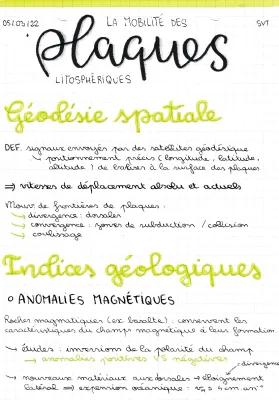 05/09/22
LA MOBILITÉ DES
SVT
plaques
LITOSPHÉRIQUES
Géodésie spatiale
DEF. signaux envoyés par des satellites géodésique
↳ positionnement précis (longitude, latitude,
altitude) de balises à la surface des plaques
⇒ vitesses de déplacement absolu et actuels
Mouv. de frontières de plaques :
↳ divergence : dorsales
↳ convergence : zones de subduction / collision
↳ coulissage
Indices géologiques
○ ANOMALIES MAGNÉTIQUES
Roches magmatiques (ex basalte) : conservent les
caractéristiques du champs magnétique à leur formation.
↳ études : inversions de la polarité du champ
→ anomalies positives VS négatives
divergence
↳ nouveaux matériaux aux dorsales → éloignement
latéral ⇒ expension océanique :